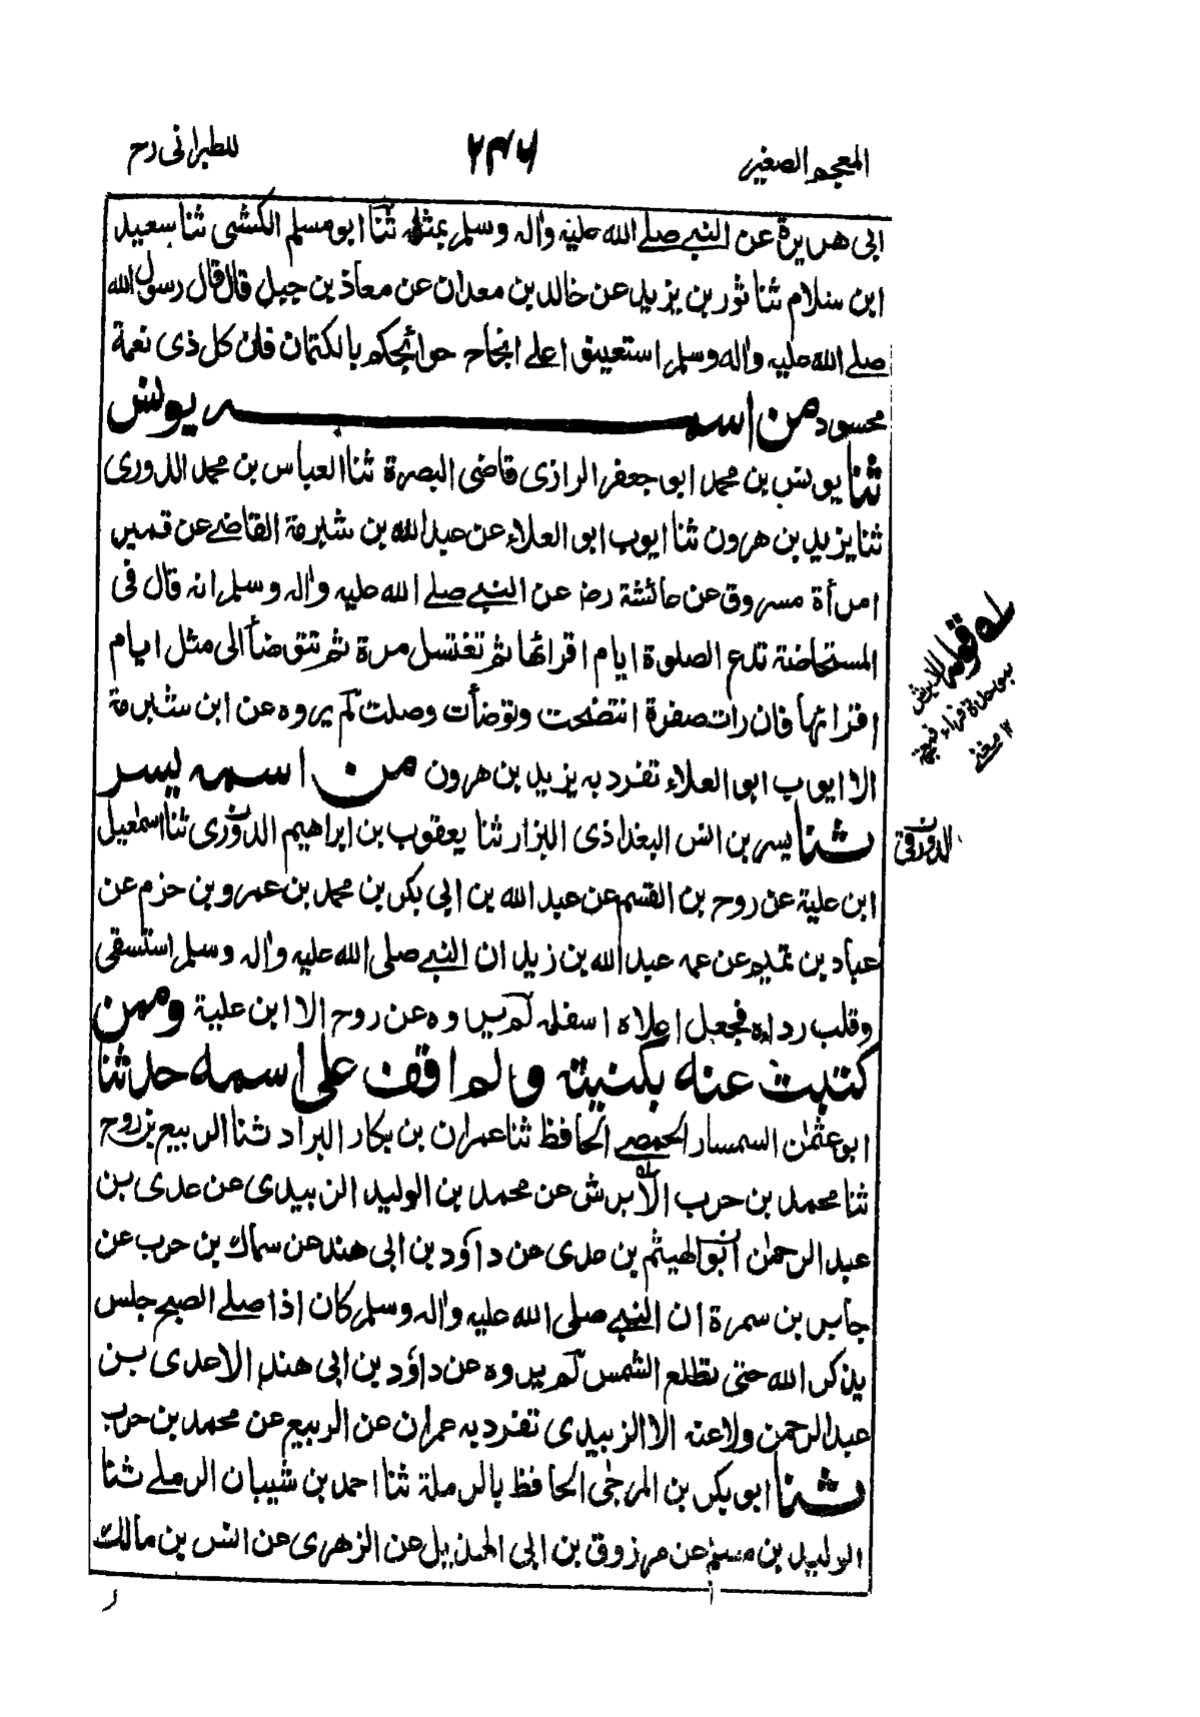 المعجم الصغير ٢٤٦ للطبرانی رح
ابی هريرة عن النبی صلے الله عليه واٰله وسلم بمثله ثنا ابو مسلم الكشی ثنا سعيد
ابن سلام ثنا ثور بن يزيد عن خالد بن معدان عن معاذ بن جبل قال قال رسول الله
صلے الله عليه واٰله وسلم استعينوا علے انجاح حوائجكم بالكتمان فان كل ذی نعمة
محسود من اسمه يونس
ثنا يونس بن محمد ابو جعفر الرازی قاضی البصرة ثنا العباس بن محمد الدوری
ثنا يزيد بن هرون ثنا ايوب ابو العلاء عن عبد الله بن شبرمة القاضے عن قمير
امرأة مسروق عن عائشة رضـ عن النبی صلے الله عليه واٰله وسلم انه قال فی
المستحاضة تدع الصلوة ايام اقرائها ثم تغتسل مرة ثم تتوضأ الی مثل ايام
اقرائها فان رات صفرة انتضحت وتوضأت وصلت لم يروه عن ابن شبرمة
الا ايوب ابو العلاء تفرد به يزيد بن هرون من اسمه يسر
ثنا يسر بن انس البغداذی البزار ثنا يعقوب بن ابراهيم الدوری ثنا اسمٰعيل
ابن علية عن روح بن القسم عن عبد الله بن ابی بكر بن محمد بن عمرو بن حزم عن
عباد بن تميم عن عمه عبد الله بن زيد ان النبی صلی الله عليه واٰله وسلم استسقی
وقلب رداءه فجعل اعلاه اسفله لم يروه عن روح الا ابن علية ومن
كتبت عنه بكنيته ولم اقف علی اسمه حدثنا
ابو عثمٰن السمسار الحمصے الحافظ ثنا عمران بن بكار البراد ثنا الربيع بن روح
ثنا محمد بن حرب الابرش عن محمد بن الوليد الزبيدی عن عدی بن
عبد الرحمٰن ابو الهيثم بن عدی عن داؤد بن ابی هند عن سماك بن حرب عن
جابر بن سمرة ان النبی صلی الله عليه واٰله وسلم كان اذا صلے الصبح جلس
يذكر الله حتی تطلع الشمس لم يروه عن داؤد بن ابی هند الا عدی بن
عبد الرحمن ولا عنه الا الزبيدی تفرد به عمران عن الربيع عن محمد بن حرب
ثنا ابو بكر بن المرجی الحافظ بالرملة ثنا احمد بن شيبان الرملے ثنا
الوليد بن مسلم عن مرزوق بن ابی الهذيل عن الزهری عن انس بن مالك
له قوله الابرش
٢ مغنے
الدورقی